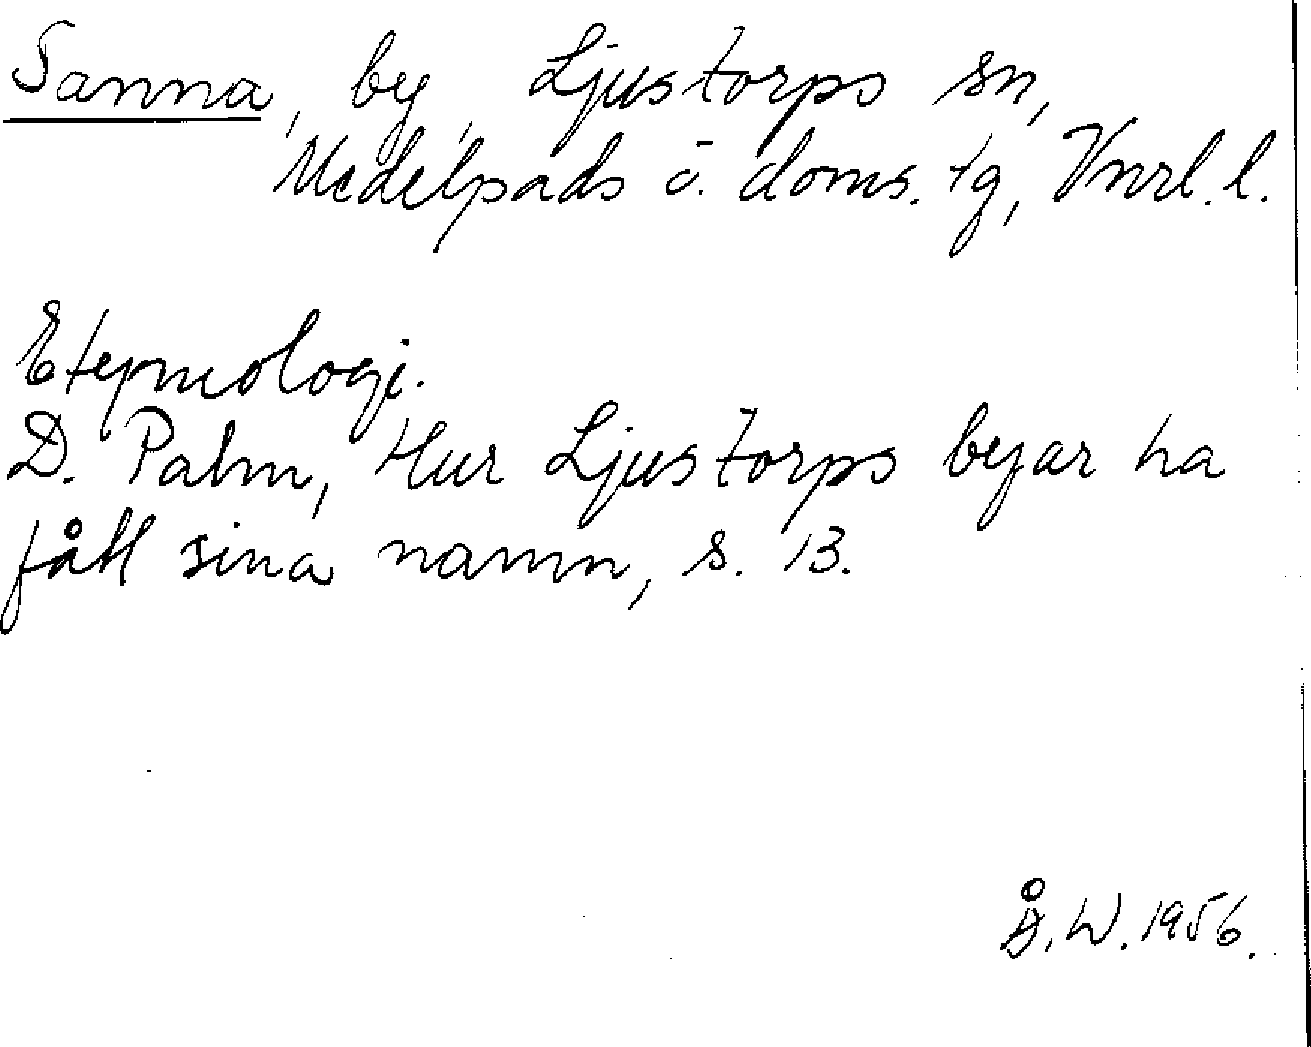 Sanna, by, Ljustorps sn,
Medelpads ö. doms. tg, Vnrl. l.
Etymologi.
D. Palm, Hur Ljustorps byar ha
fått sina namn, s. 13.
Å. W. 1956.